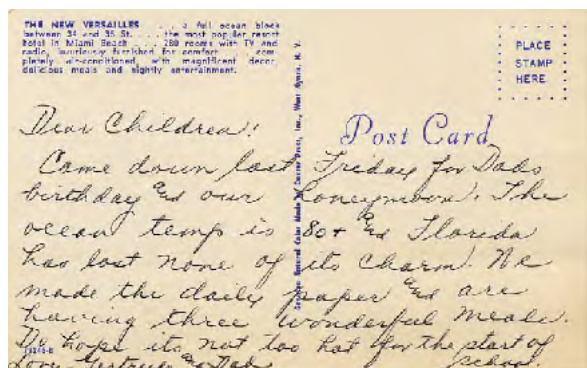 THE NEW VERSAILLES . . . a full ocean block
between 34 and 35 St. . . . the most popular resort
hotel in Miami Beach . . . 280 rooms with TV and
radio, luxuriously furnished for comfort . . . com-
pletely air-conditioned, with magnificent decor,
delicious meals and nightly entertainment.
PLACE
STAMP
HERE
Post Card
Genuine Natural Color Made by Dexter Press, Inc., West Nyack, N. Y.
Dear Children!!
Came down last Friday for Dads
birthday and our honeymoon. The
ocean temp is 80+ and Florida
has lost none of its charm. We
made the daily paper and are
having three wonderful meals.
Do hope its not too hot for the start of
school.
Love Gertrude and Dad